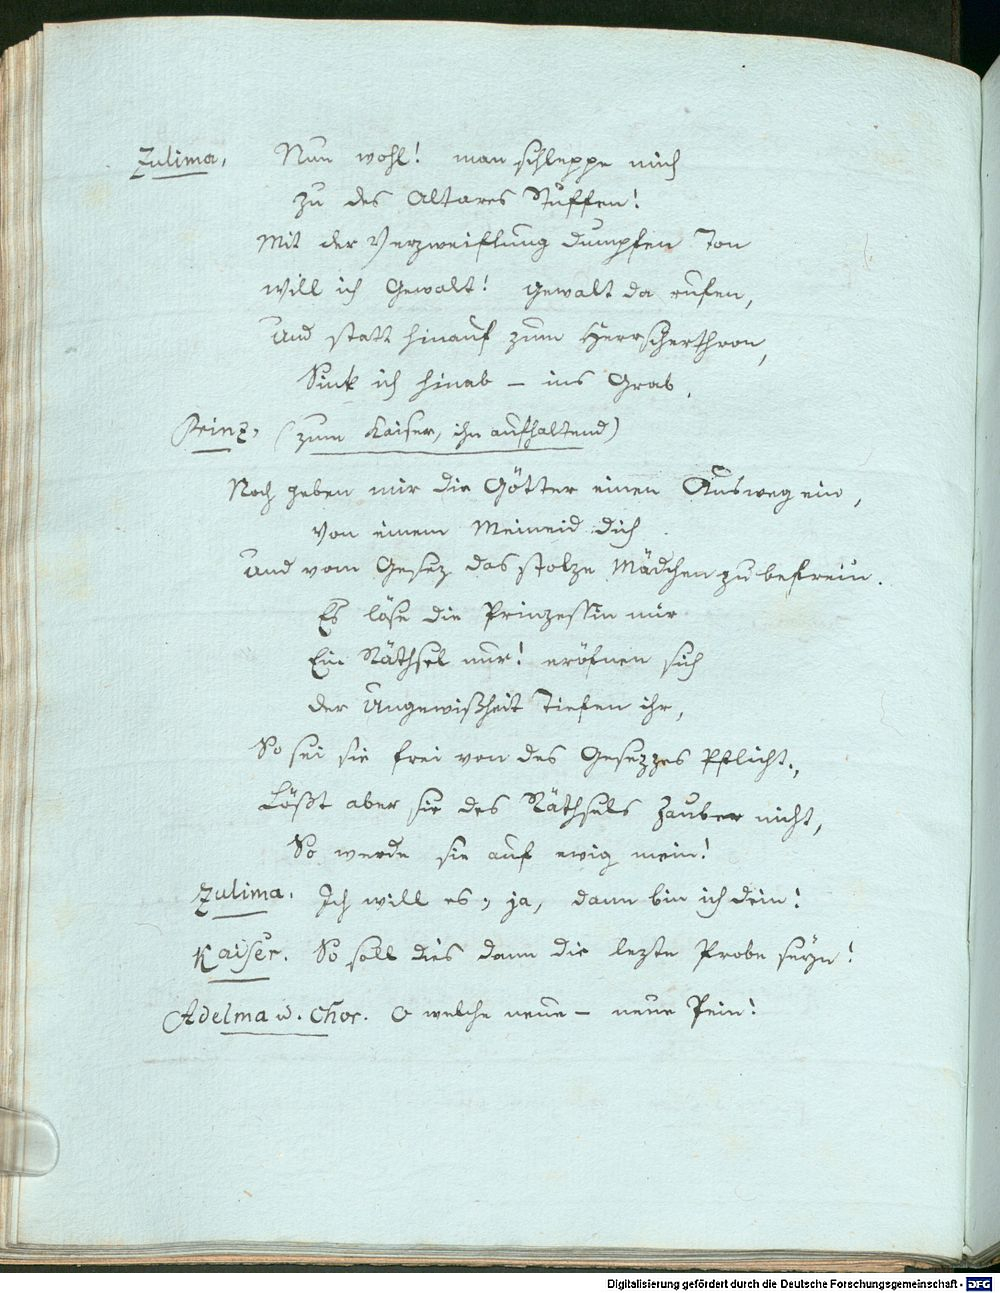 Zulima. Nun wohl! man schleppe mich
zu des Altares Stuffen!
Mit der Verzweiflung dumpfen Ton
will ich Gewalt! Gewalt da rufen,
Und statt hinauf zum Herrscherthron,
Sink ich hinab – ins Grab.
Prinz. (zum Kaiser, ihn aufhaltend)
Noch geben mir die Götter einen Ausweg ein,
Von einem Meineid dich
Und vom Gesez das stolze Mädchen zu befrein.
Es löse die Prinzessin mir
Ein Räthsel nur! eröfnen sich
der Ungewißheit Tiefen ihr,
So sei sie frei von des Gesezzes Pflicht.,
Lößt aber sie des Räthsels Zauber nicht,
So werde sie auf ewig mein!
Zulima. Ich will es, ja, dann bin ich dein!
Kaiser. So soll dies dann die lezte Probe seyn!
Adelma u. Chor. O welche neue – neue Pein!
Digitalisierung gefördert durch die Deutsche Forschungsgemeinschaft - DFG